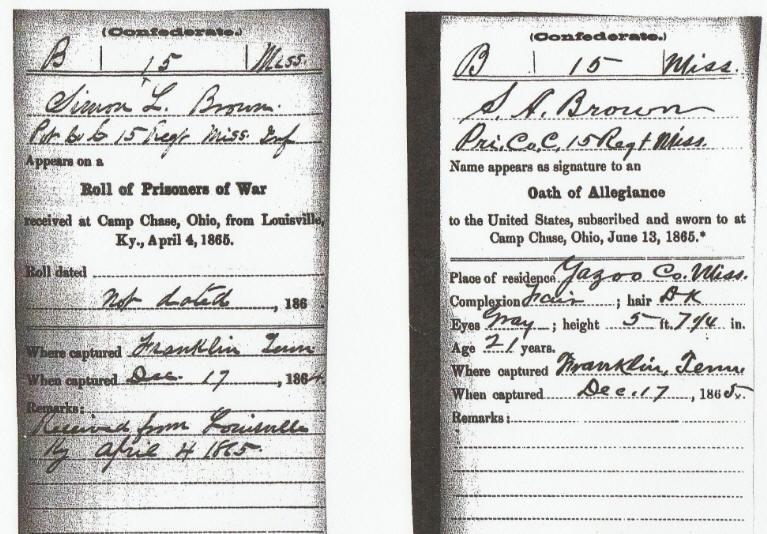 (Confederate.)
B | 15 | Miss.
Simon L. Brown.
Pvt Co C 15 Regt Miss Inf
Appears on a
Roll of Prisoners of War
received at Camp Chase, Ohio, from Louisville,
Ky., April 4, 1865.
Roll dated
Not dated, 186
Where captured Franklin Tenn
When captured Dec. 17, 1864.
Remarks:
Received from Louisville
Ky April 4 1865.
(Confederate.)
B | 15 | Miss.
S. A. Brown
Pri. Co. C, 15 Regt Miss.
Name appears as signature to an
Oath of Allegiance
to the United States, subscribed and sworn to at
Camp Chase, Ohio, June 13, 1865.*
Place of residence Yazoo Co. Miss.
Complexion Fair; hair DK
Eyes Gray; height 5 ft. 7 3/4 in.
Age 21 years.
Where captured Franklin, Tenn
When captured Dec. 17, 1865.
Remarks: